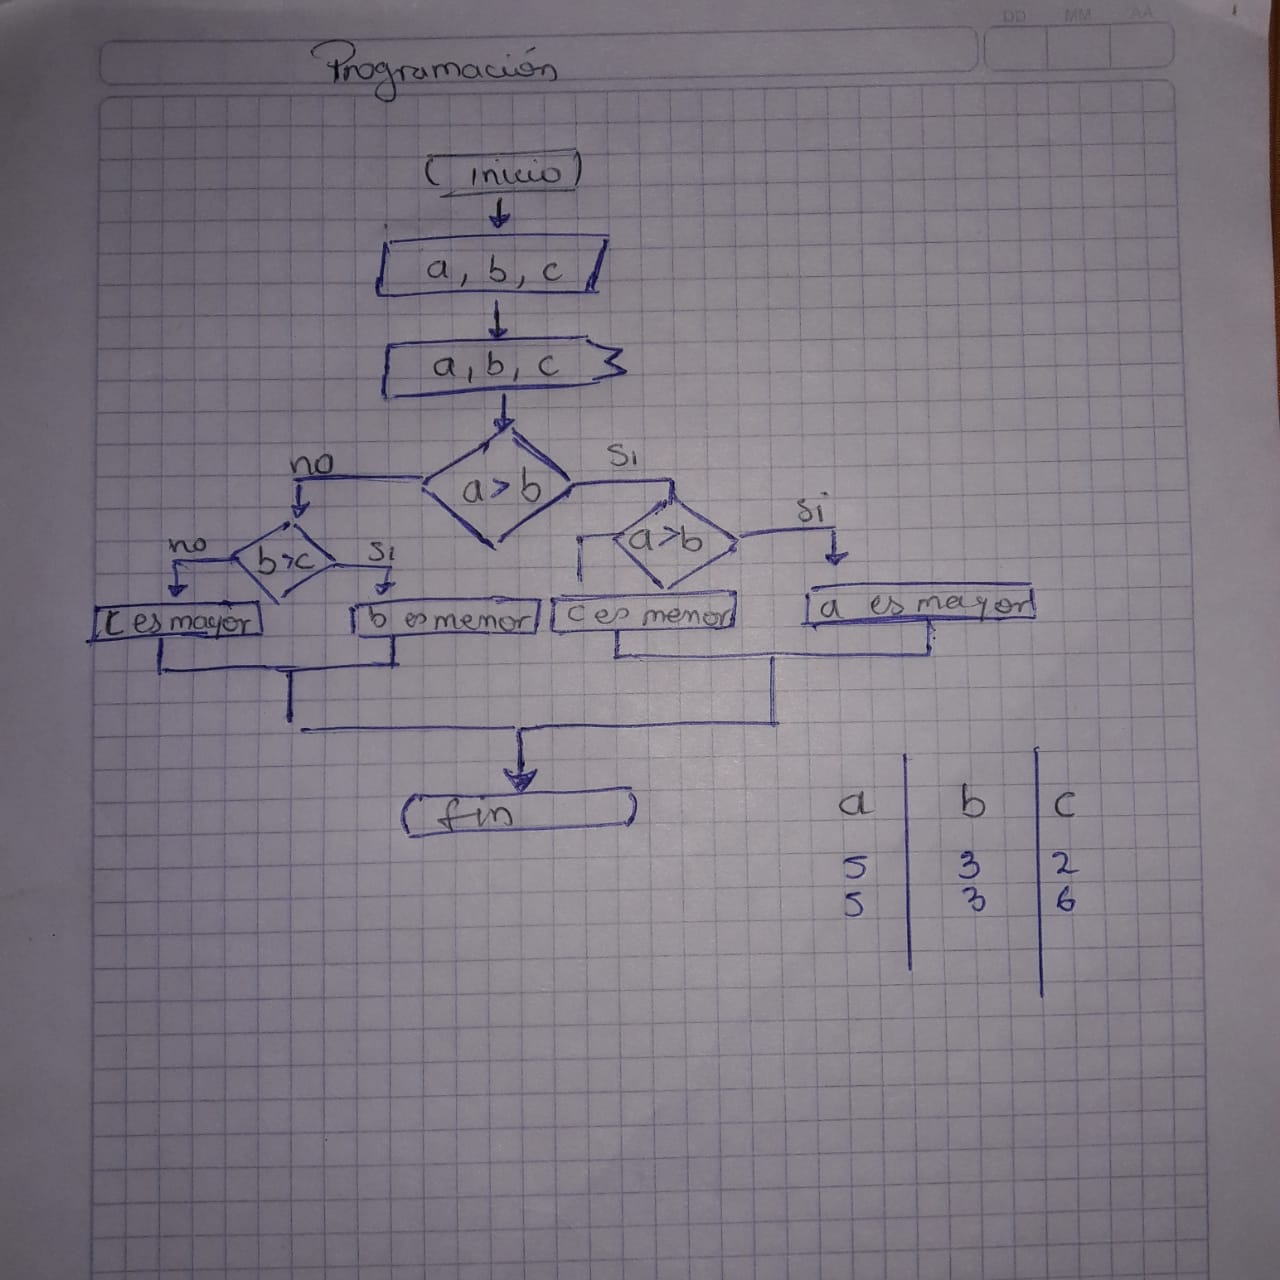 DD MM AA
Programación
inicio
a, b, c
a, b, c
a > b
no
Si
b>c
no
Si
a>b
Si
C es mayor
b es menor
C es menor
a es mayor
fin
a b c
5 3 2
5 3 6